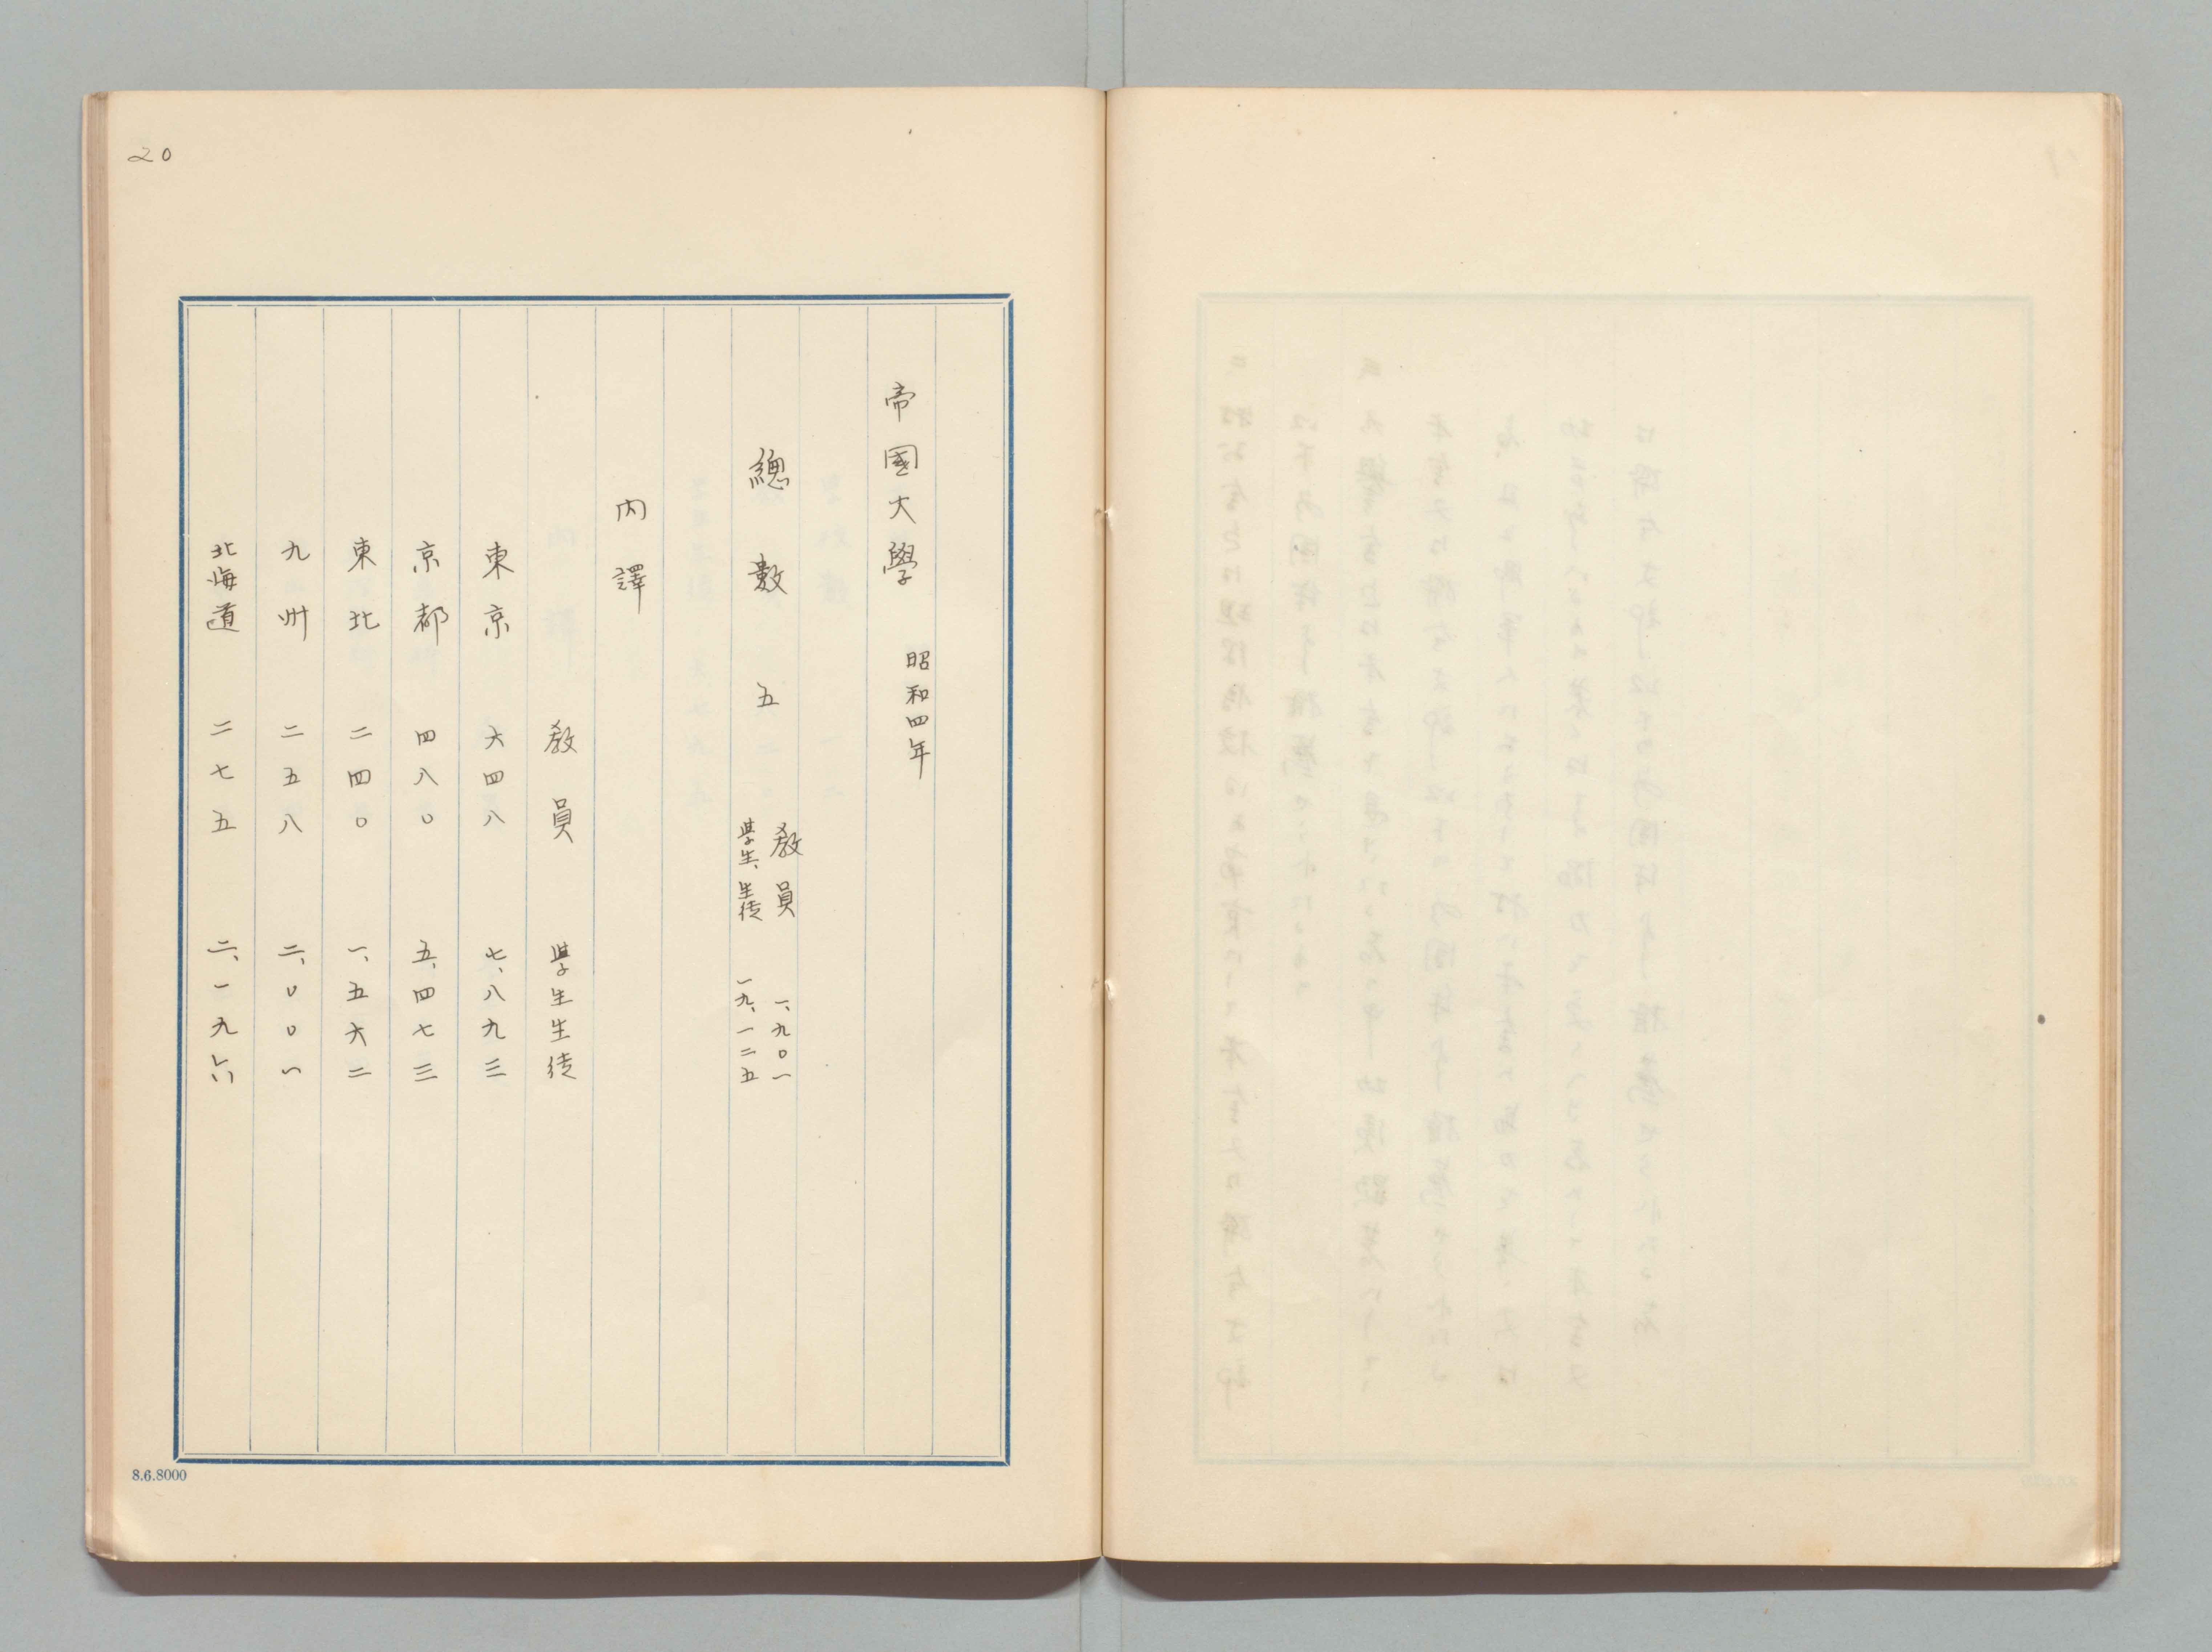 20
帝國大學　昭和四年
總數　五　教員　一、九〇一
學生、生徒　一九、一二五
內譯
教員　學生生徒
東京　六四八　七、八九三
京都　四八〇　五、四七三
東北　二四〇　一、五六二
九州　二五八　二、〇〇一
北海道　二七五　二、一九六
8.6.8000